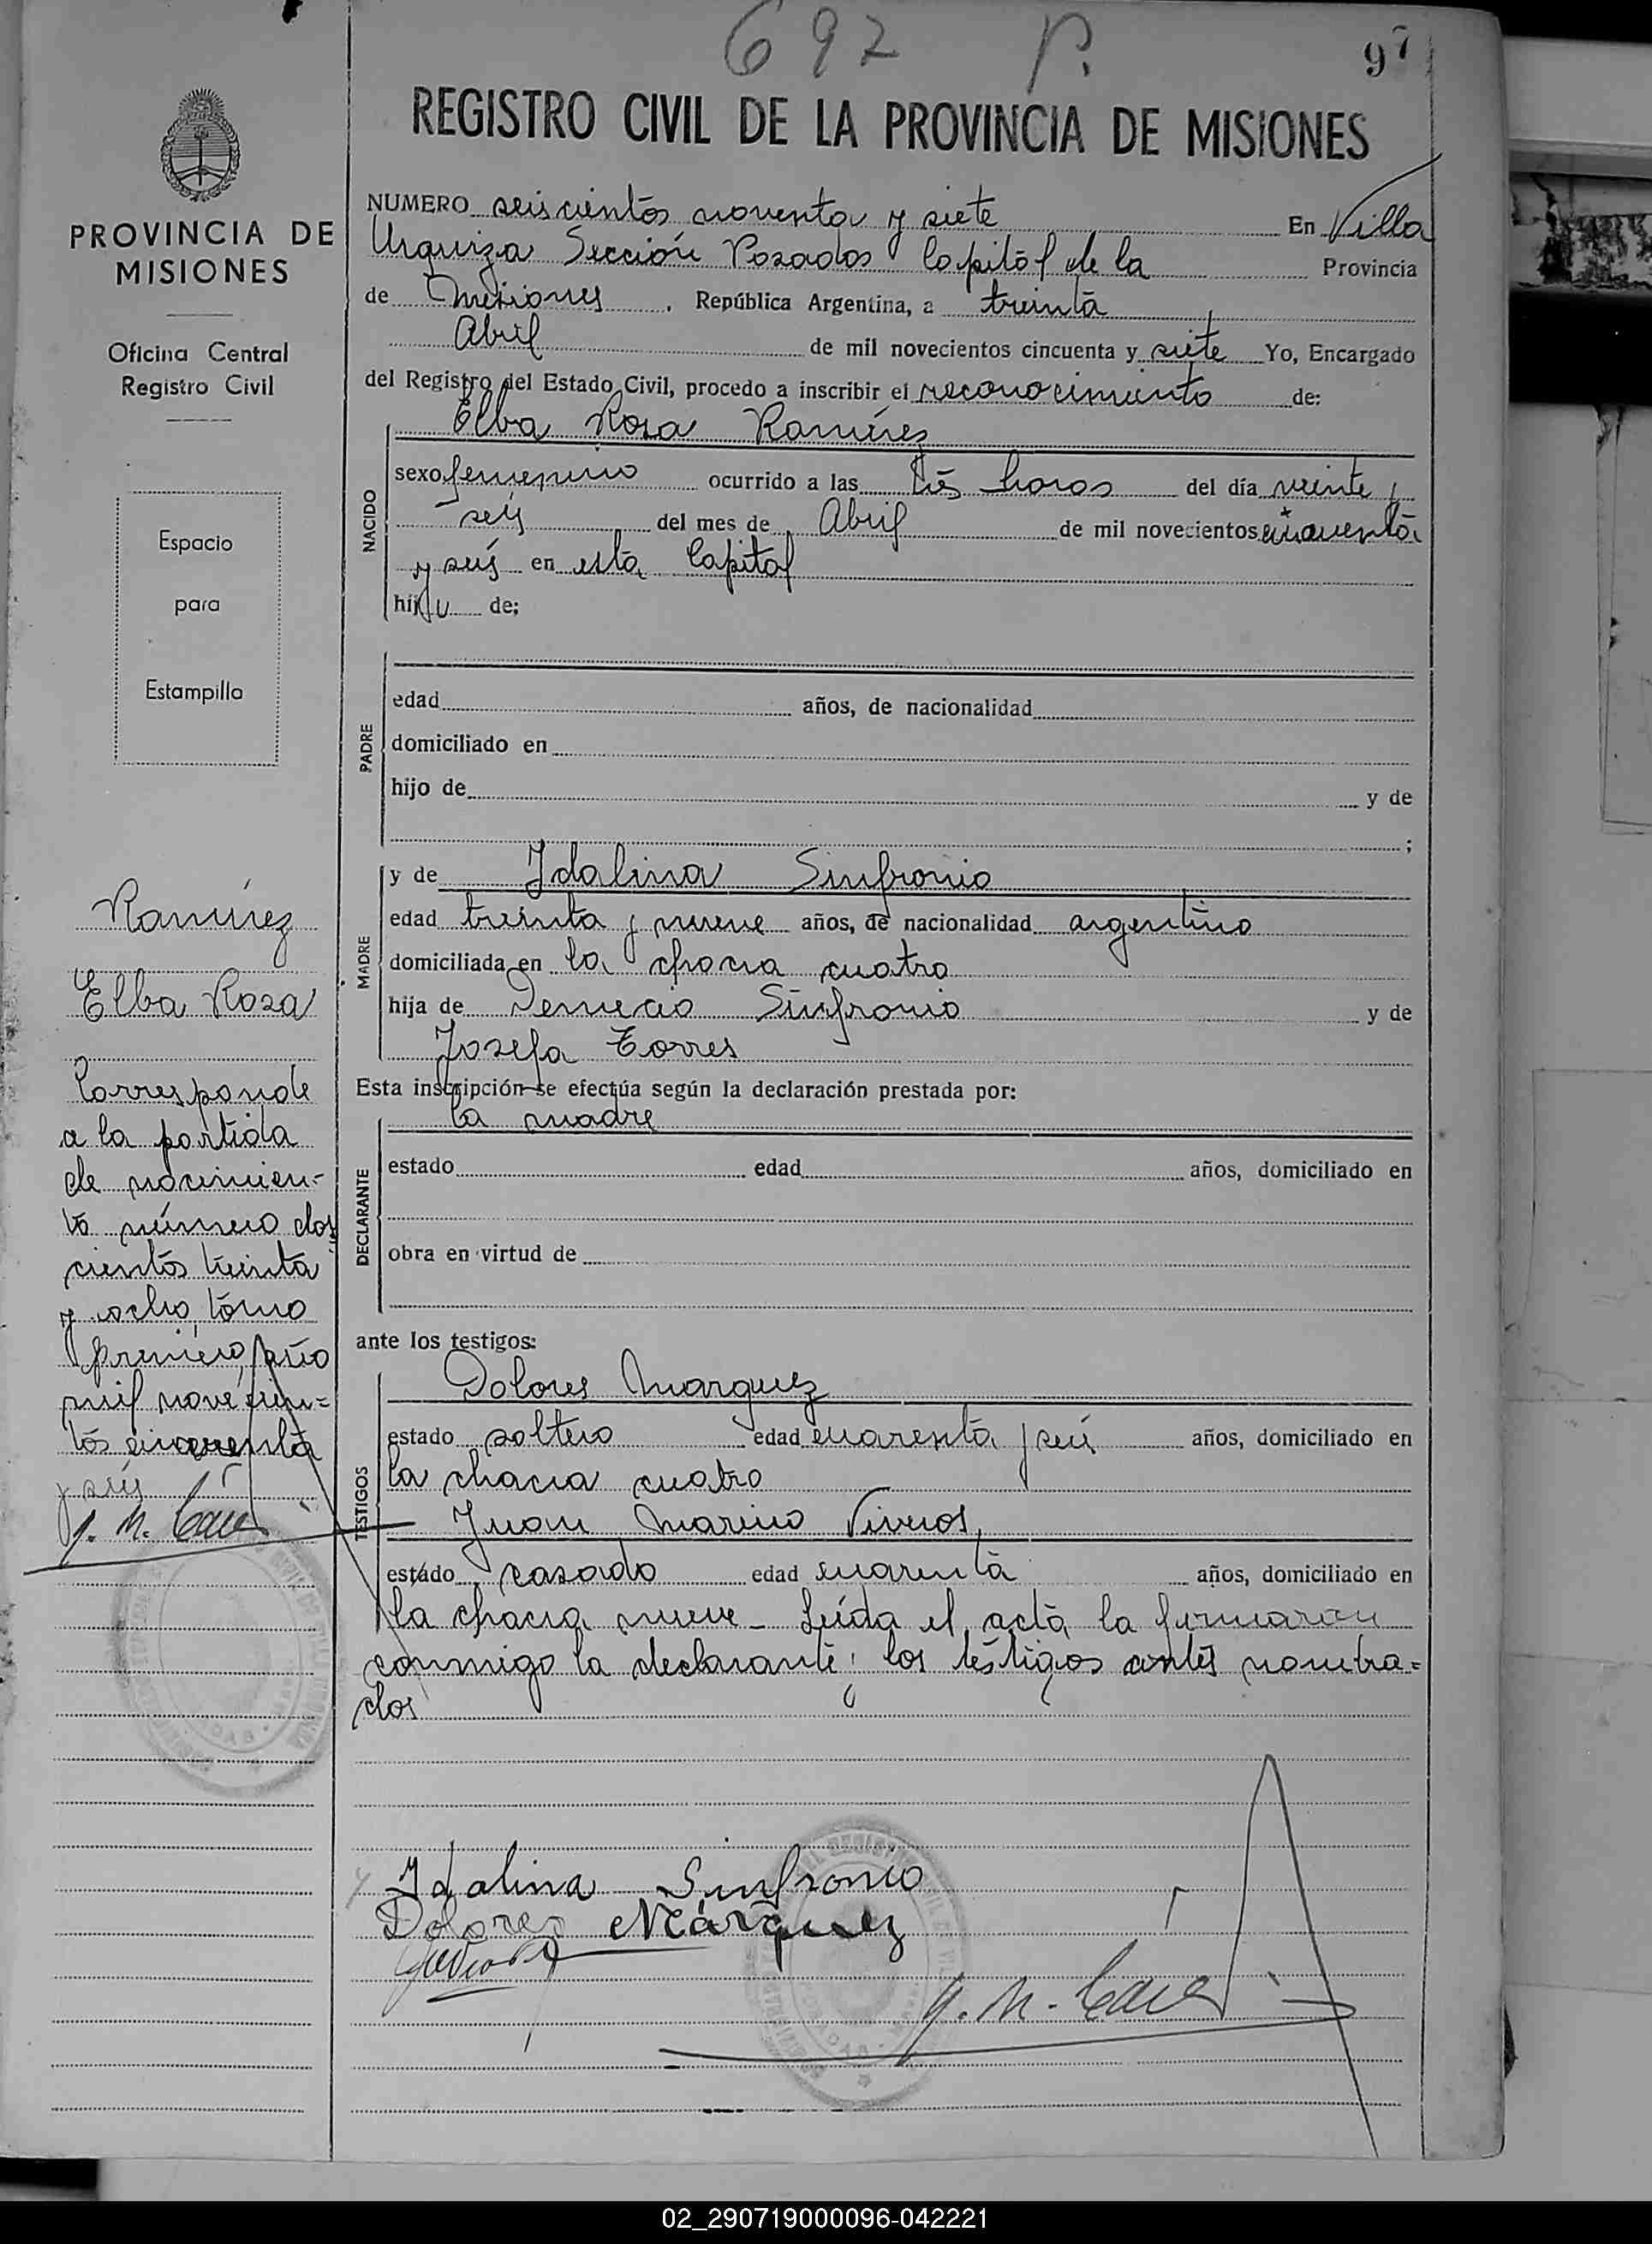 697 P.
97
REGISTRO CIVIL DE LA PROVINCIA DE MISIONES
NUMERO seiscientos noventa y siete En Villa
Urquiza Sección Posadas Capital de la Provincia
de Misiones, República Argentina, a treinta
Abril de mil novecientos cincuenta y siete Yo, Encargado
del Registro del Estado Civil, procedo a inscribir el reconocimiento de:
Elba Rosa Ramírez
NACIDO
sexo femenino ocurrido a las tres horas del día veinte y
seis del mes de Abril de mil novecientos cincuenta
y seis en esta Capital
hija de;
PADRE
edad años, de nacionalidad
domiciliado en
hijo de y de
;
MADRE
y de Idalina Sinfronio
edad treinta y nueve años, de nacionalidad argentino
domiciliada en la chacra cuatro
hija de Sinfronio y de
Josefa Torres
Esta inscripción se efectúa según la declaración prestada por:
la madre
DECLARANTE
estado edad años, domiciliado en
obra en virtud de
ante los testigos:
TESTIGOS
Dolores Marquez
estado soltero edad cuarenta y seis años, domiciliado en
la chacra cuatro
Juan Marino Viveros,
estado casado edad cuarenta años, domiciliado en
la chacra nueve - Leída el acta la firmaron
conmigo la declarante y los testigos antes nombra=
dos
Idalina Sinfronio
Dolores Márquez
PROVINCIA DE
MISIONES
Oficina Central
Registro Civil
Espacio
para
Estampilla
Ramírez
Elba Rosa
Corresponde
a la partida
de nacimien-
to número dos
cientos treinta
y ocho, tomo
primero, año
mil novecien=
tos cincuenta
y seis
02_290719000096-042221